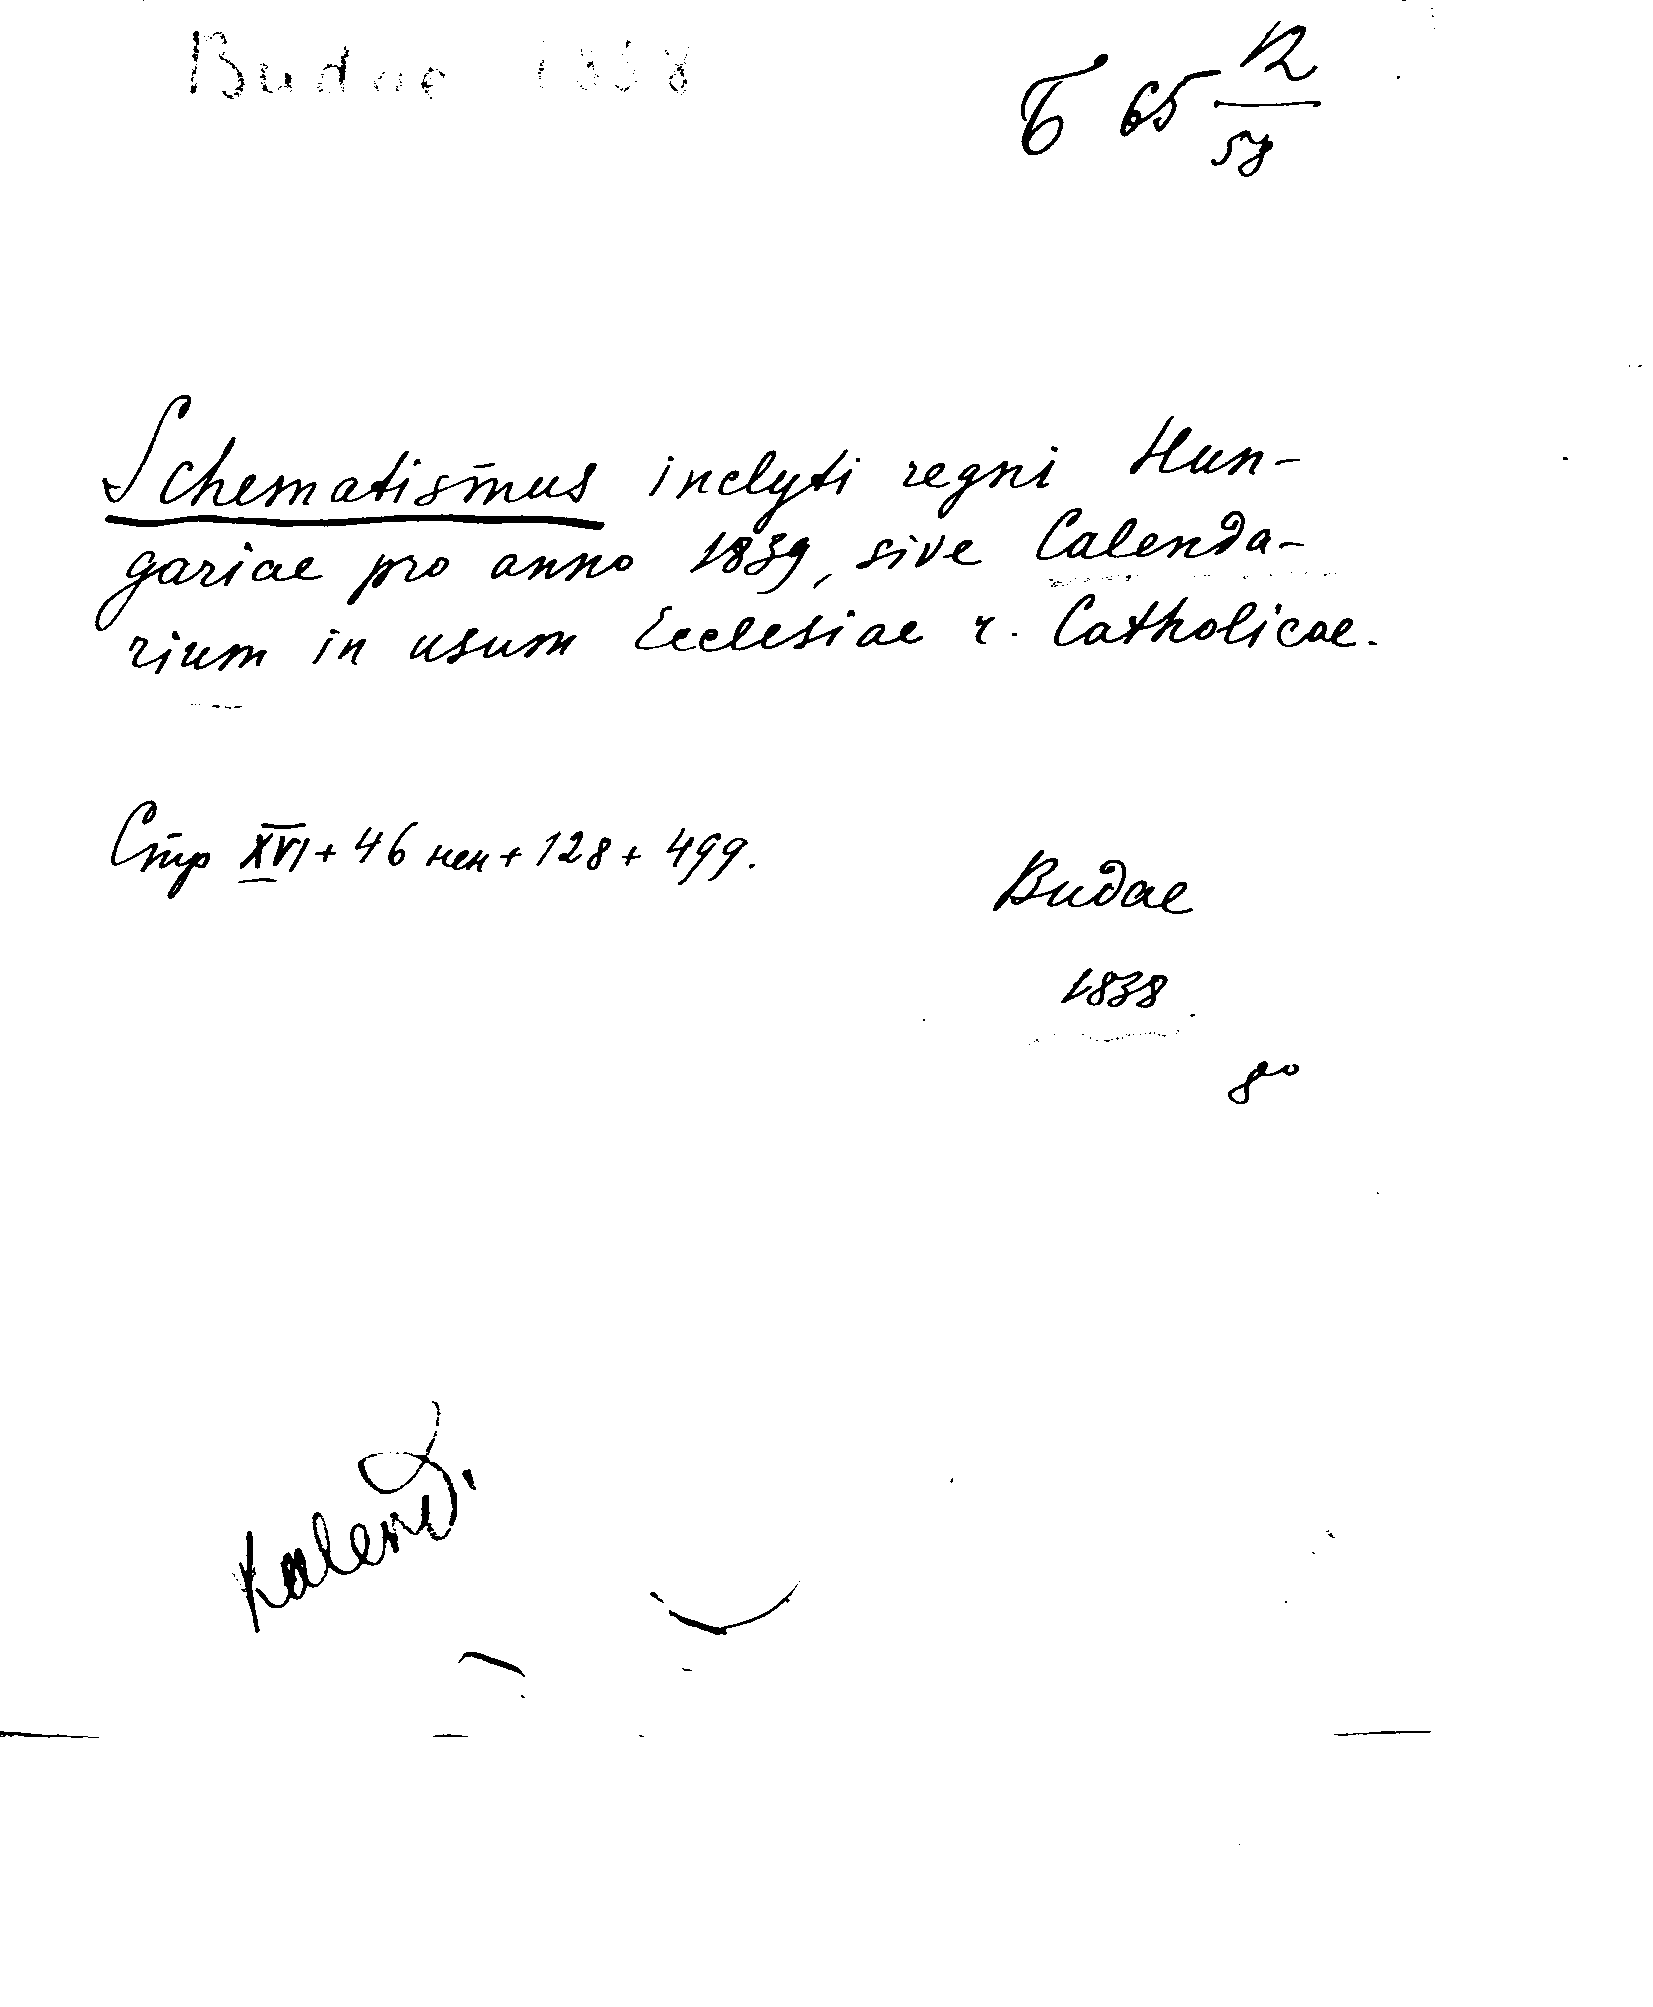 Budae 1838
Б 65 12/58
Schematismus inclyti regni Hun-
gariae pro anno 1839, sive Calenda-
rium in usum Ecclesiae r. Catholicae.
Стр XVI + 46 нен + 128 + 499.
Budae
1838
8°
Kalend.